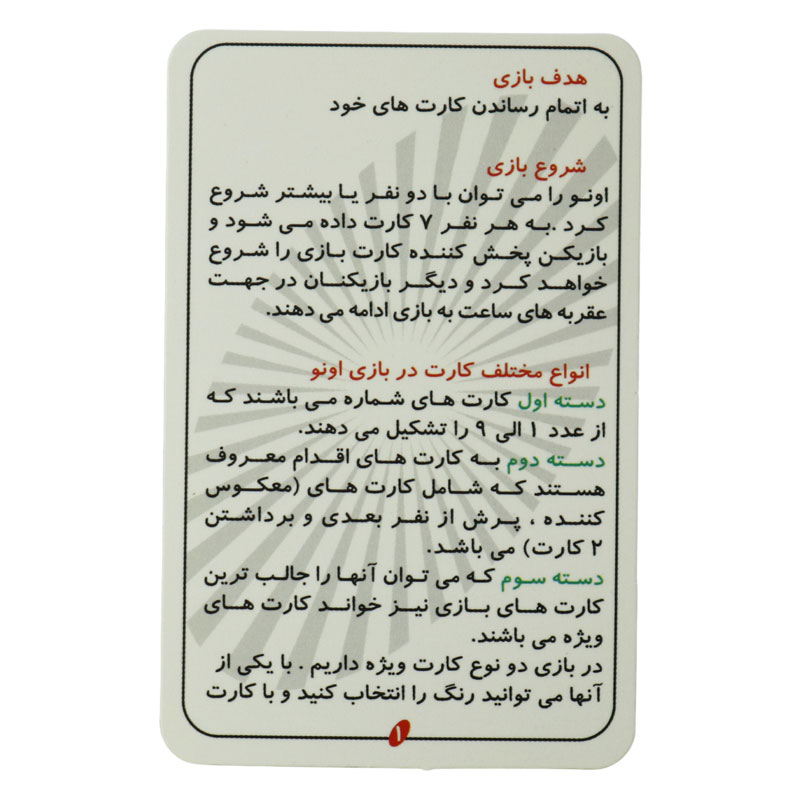 هدف بازی
به اتمام رساندن کارت های خود
شروع بازی
اونو را می توان با دو نفر یا بیشتر شروع
کرد .به هر نفر ۷ کارت داده می شود و
بازیکن پخش کننده کارت بازی را شروع
خواهد کرد و دیگر بازیکنان در جهت
عقربه های ساعت به بازی ادامه می دهند.
انواع مختلف کارت در بازی اونو
دسته اول کارت های شماره می باشند که
از عدد ۱ الی ۹ را تشکیل می دهند.
دسته دوم به کارت های اقدام معروف
هستند که شامل کارت های (معکوس
کننده ، پرش از نفر بعدی و برداشتن
۲ کارت) می باشد.
دسته سوم که می توان آنها را جالب ترین
کارت های بازی نیز خواند کارت های
ویژه می باشند.
در بازی دو نوع کارت ویژه داریم . با یکی از
آنها می توانید رنگ را انتخاب کنید و با کارت
۱